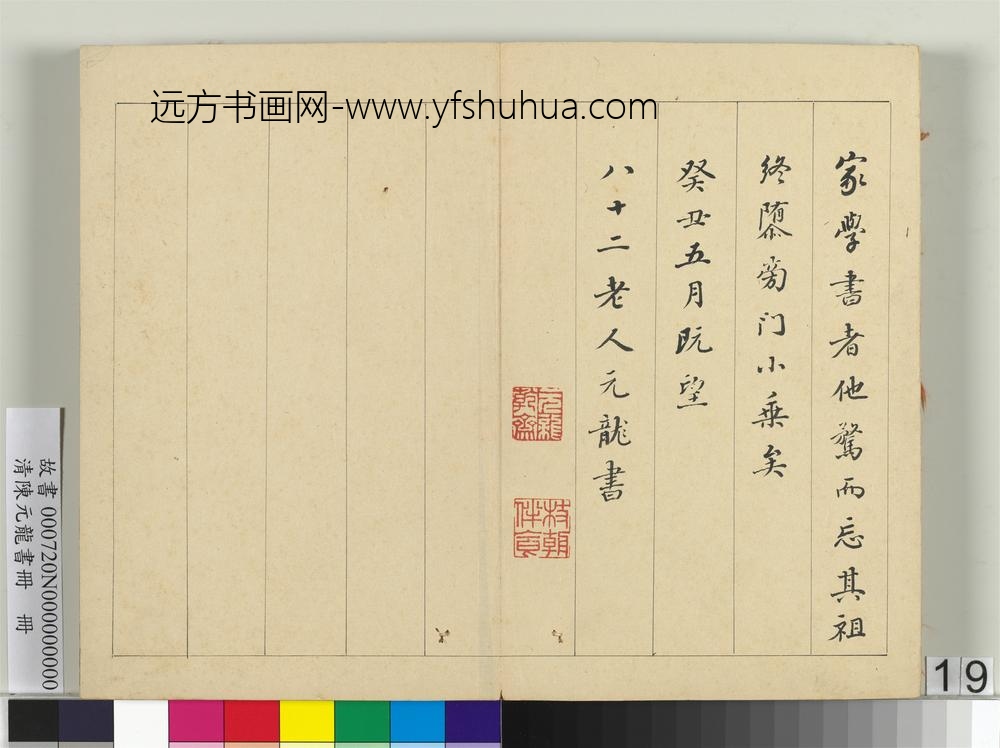 远方书画网-www.yfshuhua.com
家學書者他騖而忘其祖
終墮旁门小乗矣
癸丑五月既望
八十二老人元龍書
元龍
乾齋
杖朝
伴食
故書 000720N000000000
清陳元龍書冊 冊
19